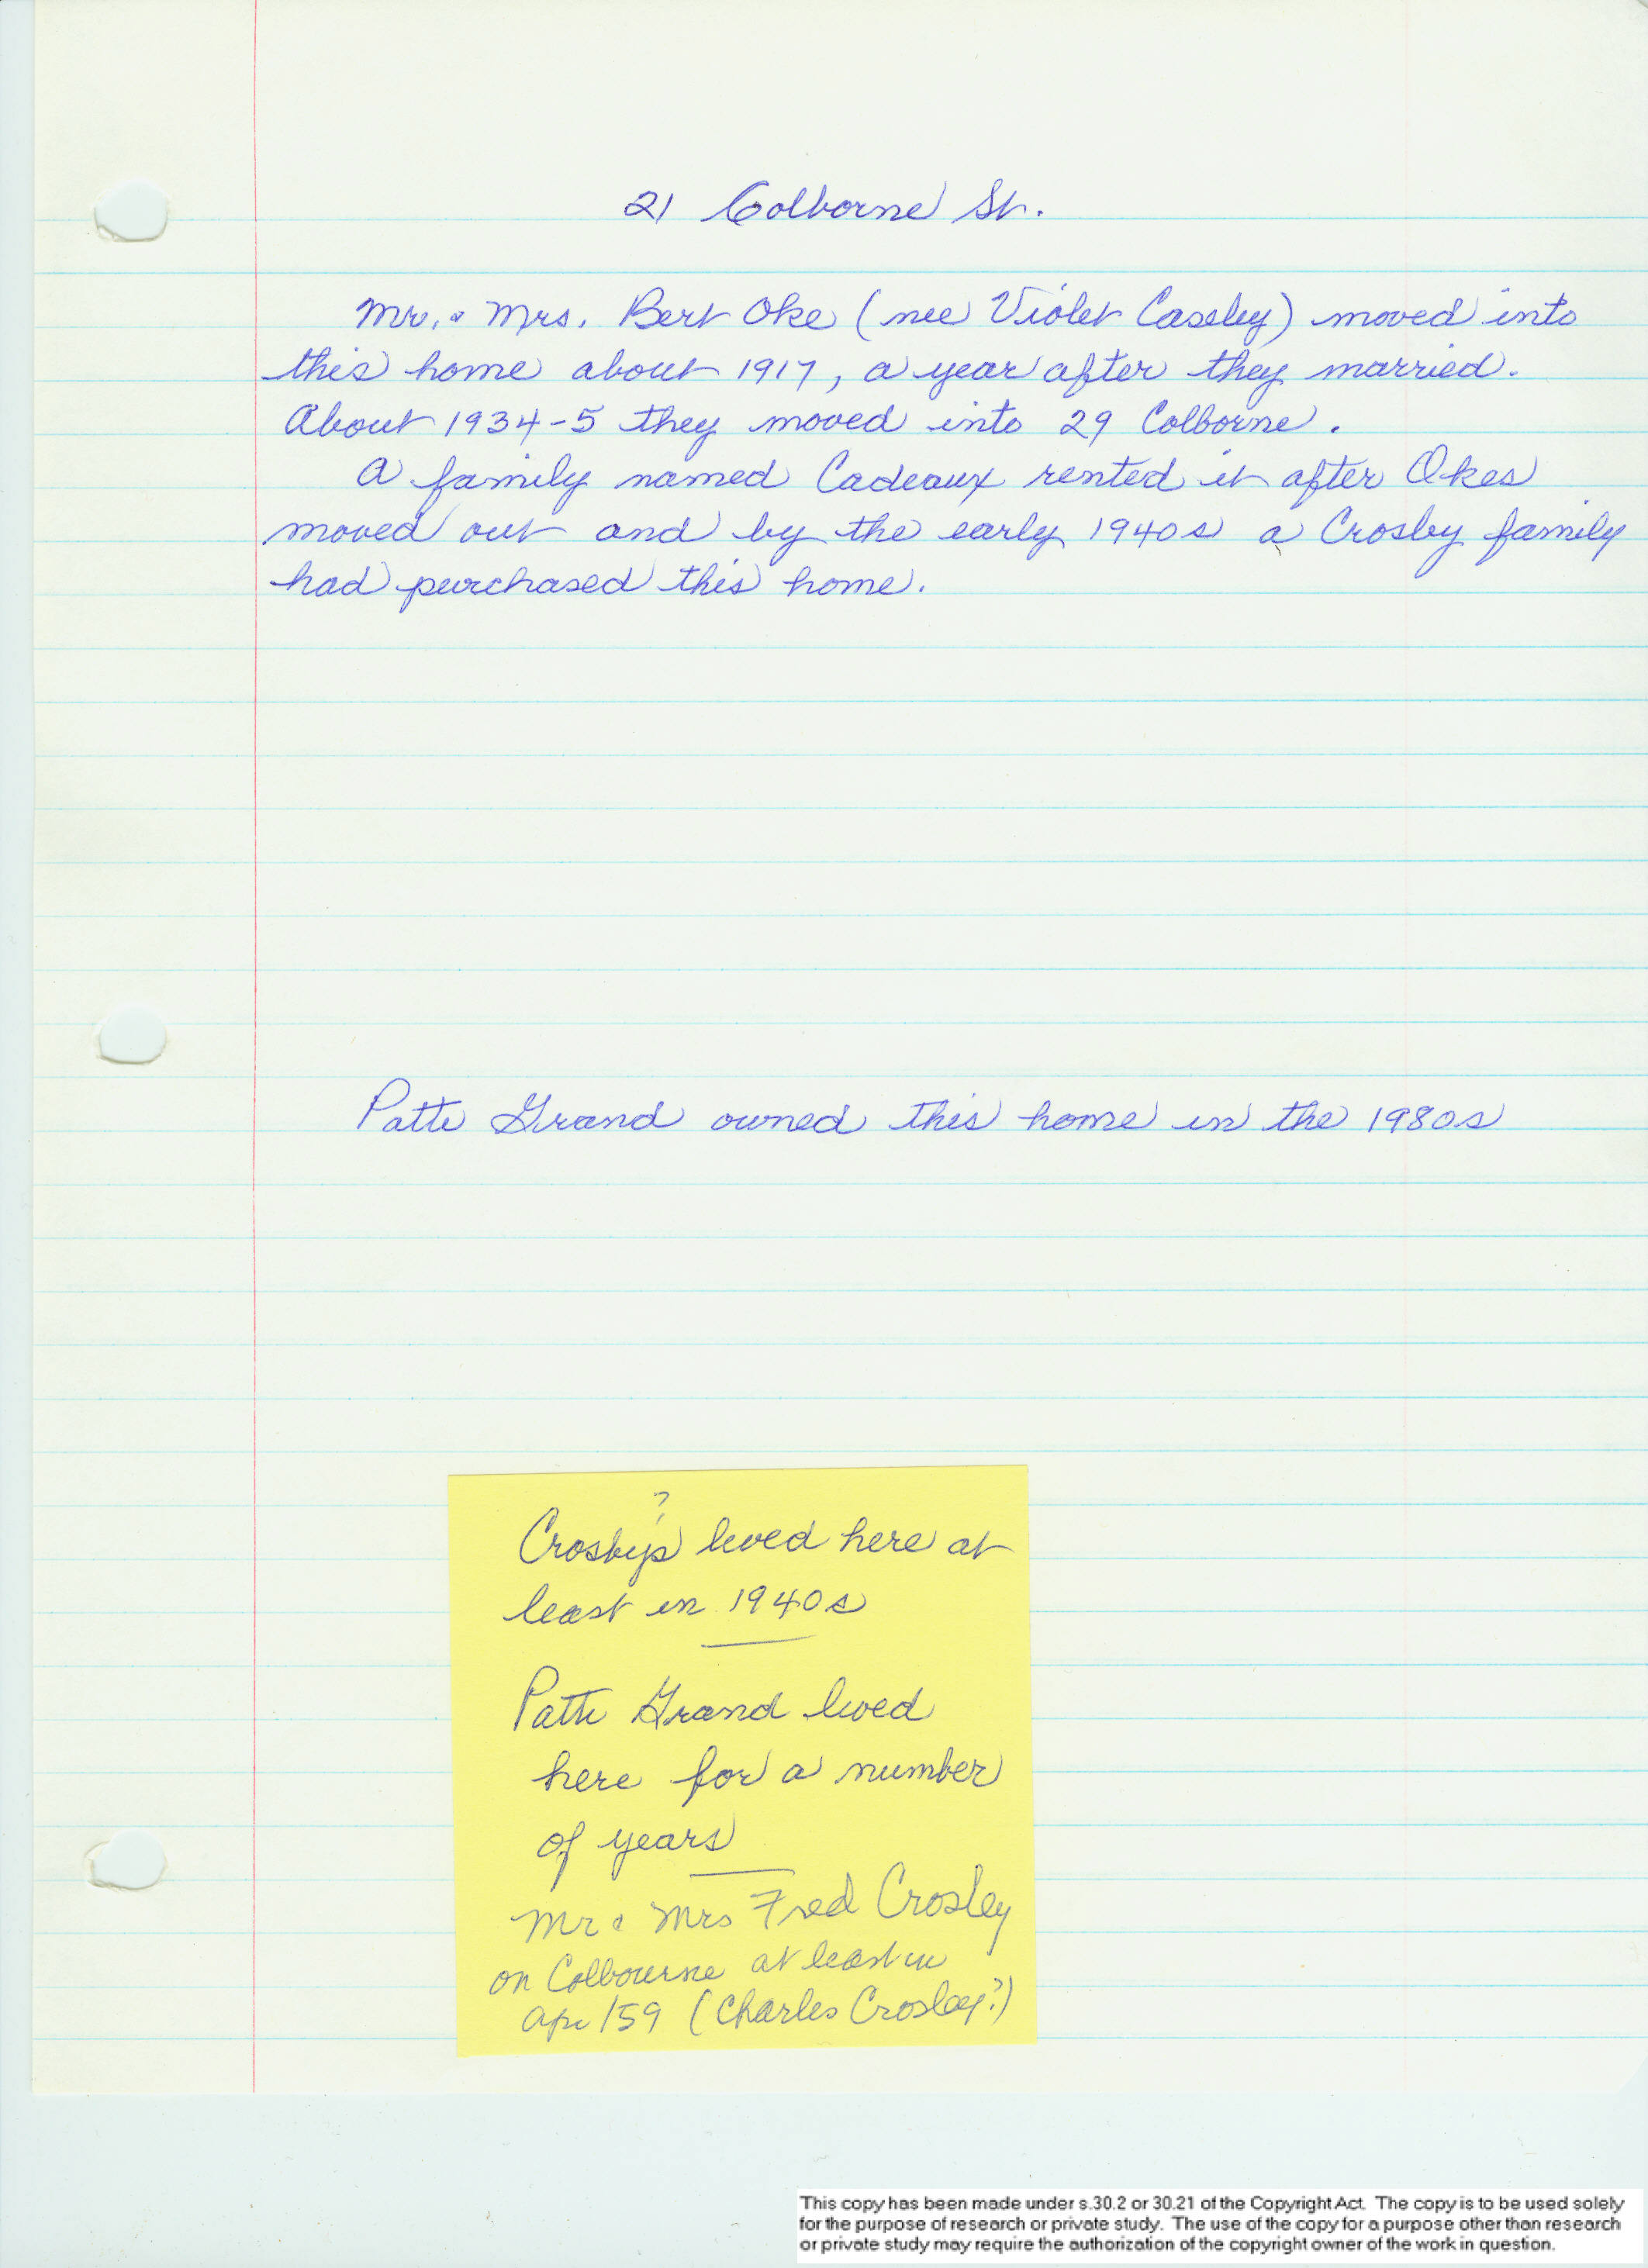 21 Colborne St.
Mr. & Mrs. Bert Oke (nee Violet Caseley) moved into
this home about 1917, a year after they married.
About 1934-5 they moved into 29 Colborne.
A family named Cadeaux rented it after Okes
moved out and by the early 1940s a Crosby family
had purchased this home.
Patti Grand owned this home in the 1980s
?
Crosby's lived here at
least in 1940s
Patti Grand lived
here for a number
of years
Mr & Mrs Fred Crosley
on Colbourne at least in
Apr/59 (Charles Crosley?)
This copy has been made under s.30.2 or 30.21 of the Copyright Act. The copy is to be used solely
for the purpose of research or private study. The use of the copy for a purpose other than research
or private study may require the authorization of the copyright owner of the work in question.